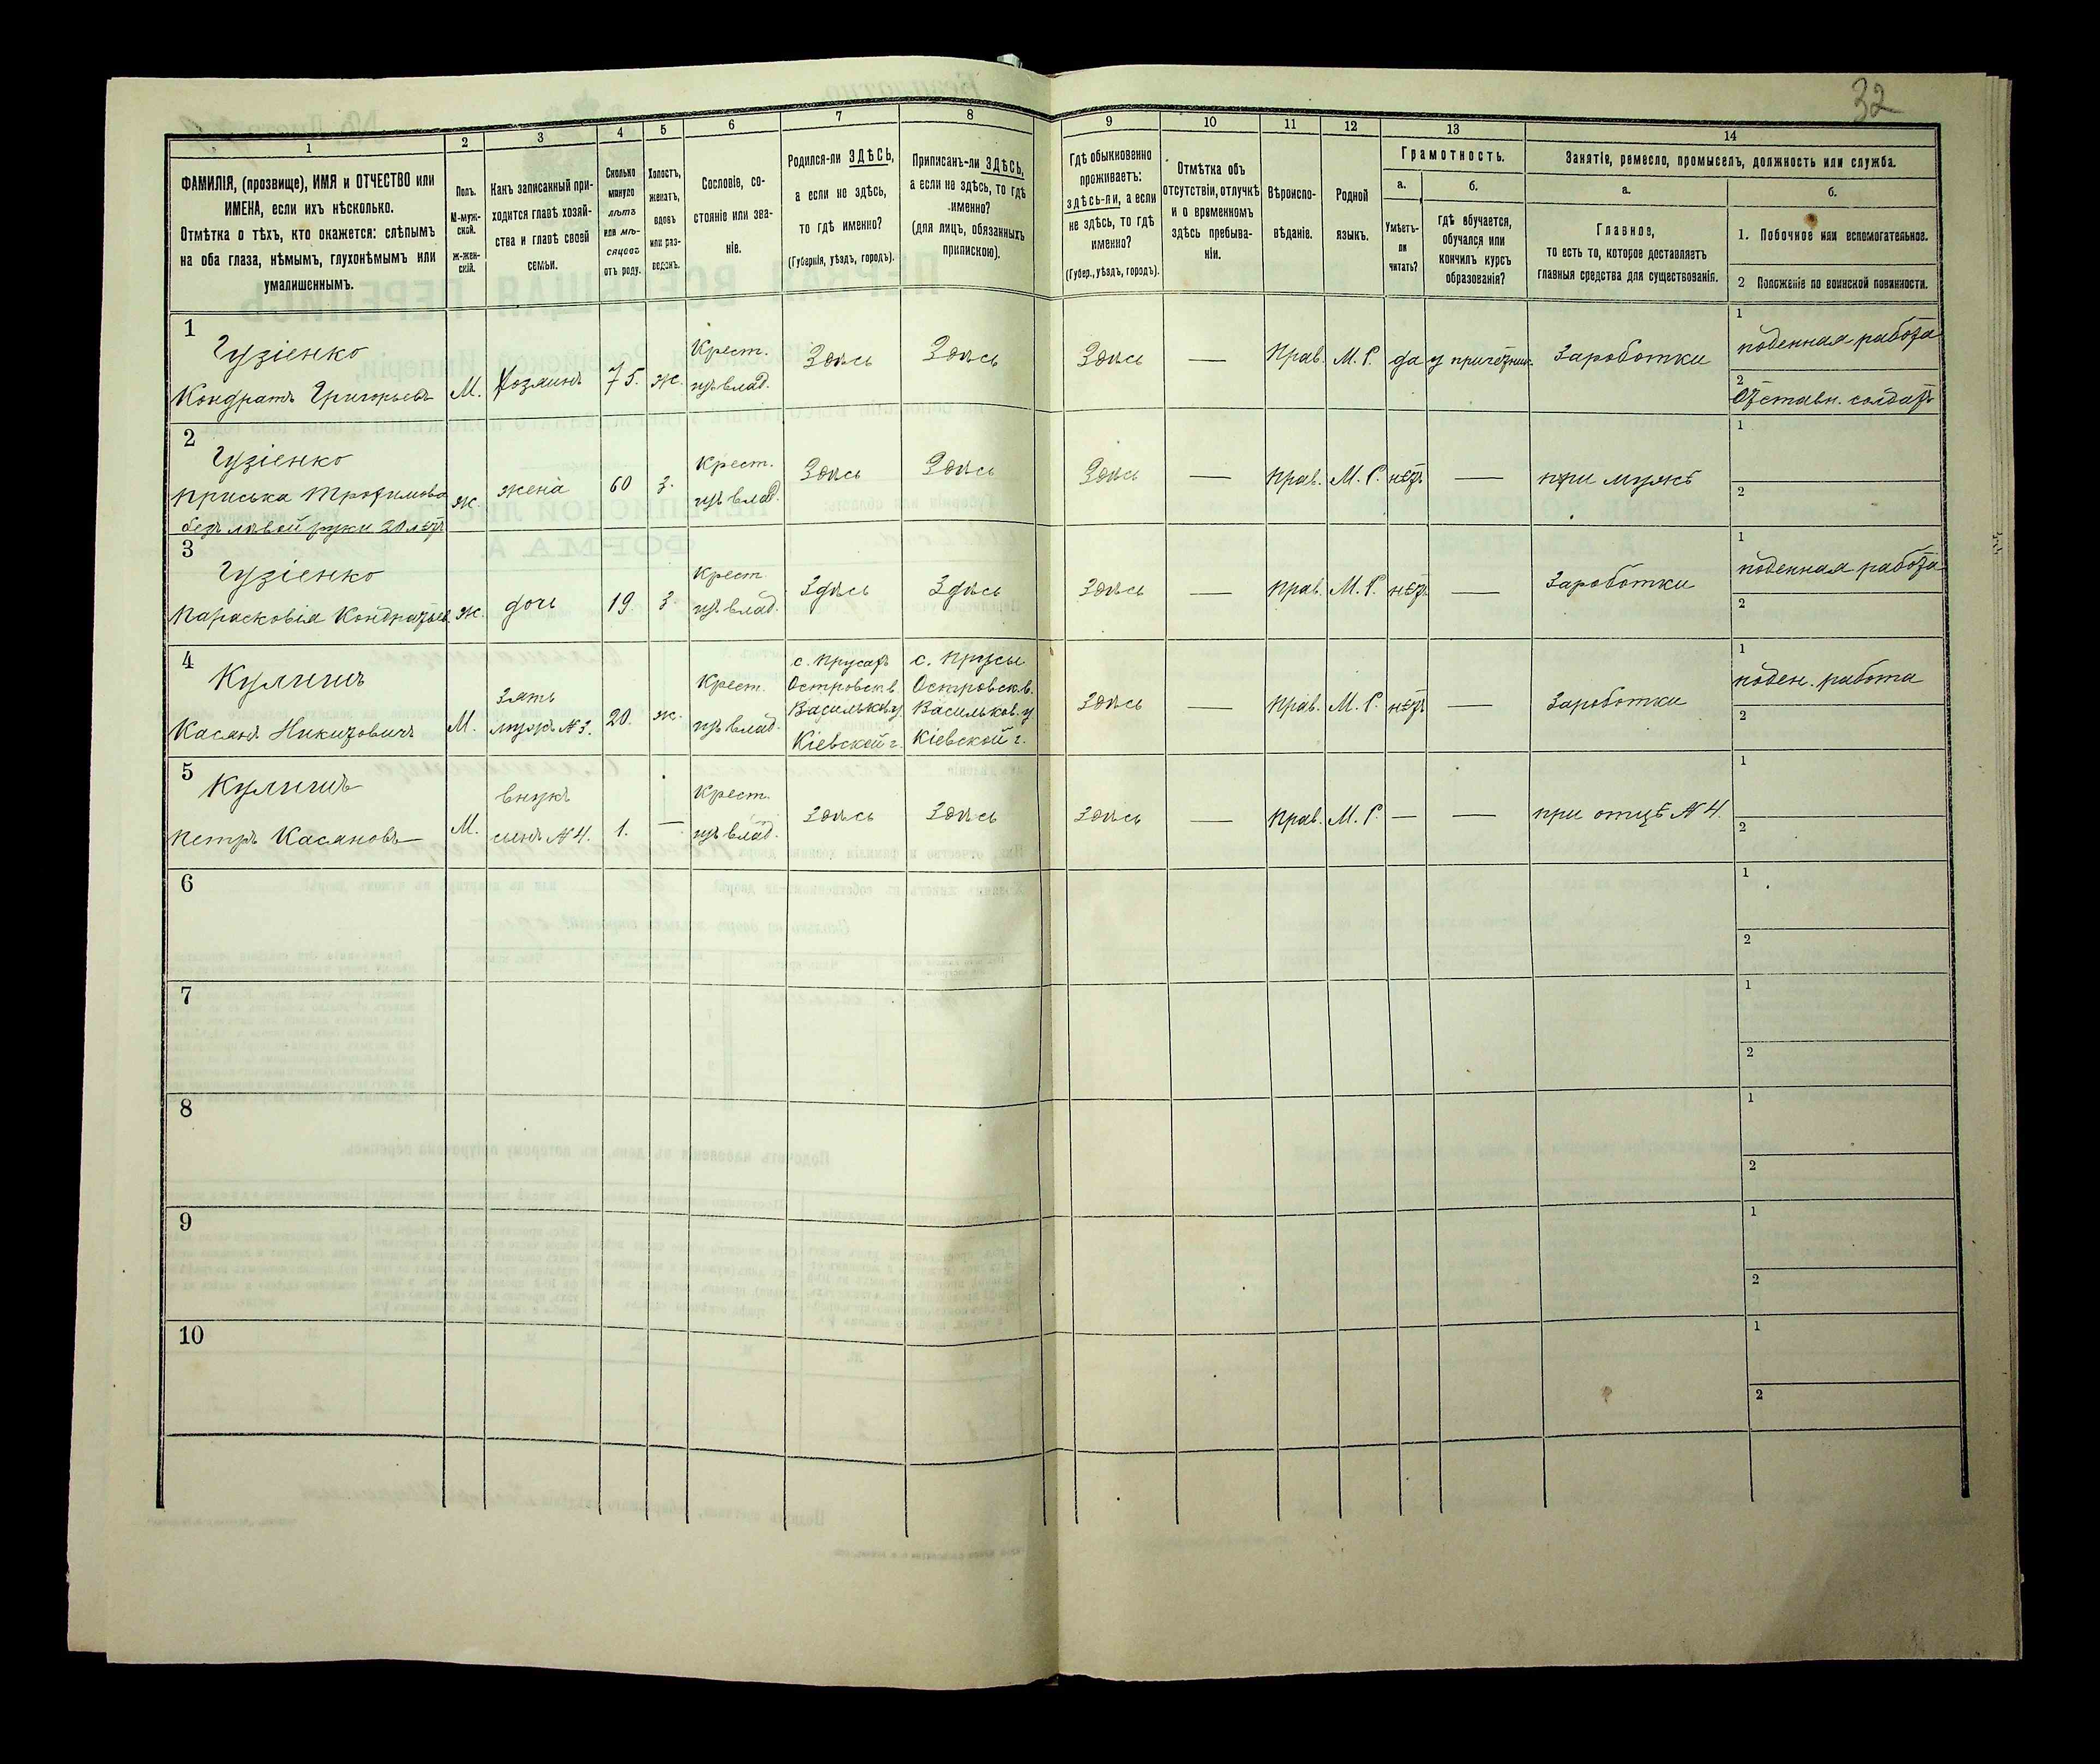 32
1
2
3
4
5
6
7
8
9
10
11
12
13
14
ФАМИЛІЯ, (прозвище), ИМЯ и ОТЧЕСТВО или
ИМЕНА, если ихъ нѣсколько.
Отмѣтка о тѣхъ, кто окажется: слѣпымъ
на оба глаза, нѣмымъ, глухонѣмымъ или
умалишеннымъ.
Полъ.
М-муж-
ской.
Ж-жен-
скій.
Какъ записанный при-
ходится главѣ хозяй-
ства и главѣ своей
семьи.
Сколько
минуло
лѣтъ
или мѣ-
сяцевъ
отъ роду.
Холостъ,
женатъ,
вдовъ
или раз-
веденъ.
Сословіе, со-
стояніе или зва-
ніе.
Родился-ли ЗДѢСЬ,
а если не здѣсь,
то гдѣ именно?
(Губернія, уѣздъ, городъ).
Приписанъ-ли ЗДѢСЬ,
а если не здѣсь, то гдѣ
именно?
(для лицъ, обязанныхъ
припискою).
Гдѣ обыкновенно
проживаетъ:
здѣсь-ли, а если
не здѣсь, то гдѣ
именно?
(Губер., уѣздъ, городъ).
Отмѣтка объ
отсутствіи, отлучкѣ
и о временномъ
здѣсь пребыва-
ніи.
Вѣроиспо-
вѣданіе.
Родной
языкъ.
Грамотность.
а.
б.
Умѣетъ-
ли
читать?
гдѣ обучается,
обучался или
кончилъ курсъ
образованія?
Занятіе, ремесло, промыселъ, должность или служба.
а.
б.
Главное,
то есть то, которое доставляетъ
главныя средства для существованія.
1. Побочное или вспомогательное.
2 Положеніе по воинской повинности.
1
Гузіенко
Кондратъ Григорьевъ
М.
Хозяинъ
75.
ж.
Крест.
изъ влад.
Здѣсь
Здѣсь
Здѣсь
—
Прав.
М. Р.
да
у причетник.
Заработки
1
поденная работа
2
Отставн. солдатъ
2
Гузіенко
Приська Трофимова
безъ лѣвой руки 20 лѣтъ
Ж.
жена
60
з.
Крест.
изъ влад.
Здѣсь
Здѣсь
Здѣсь
—
Прав.
М. Р.
нѣтъ
—
при мужѣ
1
2
3
Гузіенко
Парасковія Кондратьев.
Ж.
дочь
19.
з
Крест.
изъ влад.
Здѣсь
Здѣсь
Здѣсь
—
Прав.
М. Р.
нѣтъ
—
Заработки
1
поденная работа
2
4
Кулишъ
Касьян Никитовичъ
М.
Зять
мужъ №3.
20.
ж.
Крест.
изъ влад.
с. Прусахъ
Островск. в.
Васильков. у
Кіевской г.
с. Прусы
Островск. в.
Васильков. у
Кіевской г.
Здѣсь
—
Прав.
М. Р.
нѣтъ
—
Заработки
1
поден. работа
2
5
Кулишъ
Петръ Касяновъ
М.
внукъ
сынъ №4.
1.
—
Крест.
изъ влад.
Здѣсь
Здѣсь
Здѣсь
—
Прав.
М. Р.
—
—
при отцѣ №4.
1
2
6
1
2
7
1
2
8
1
2
9
1
2
10
1
2